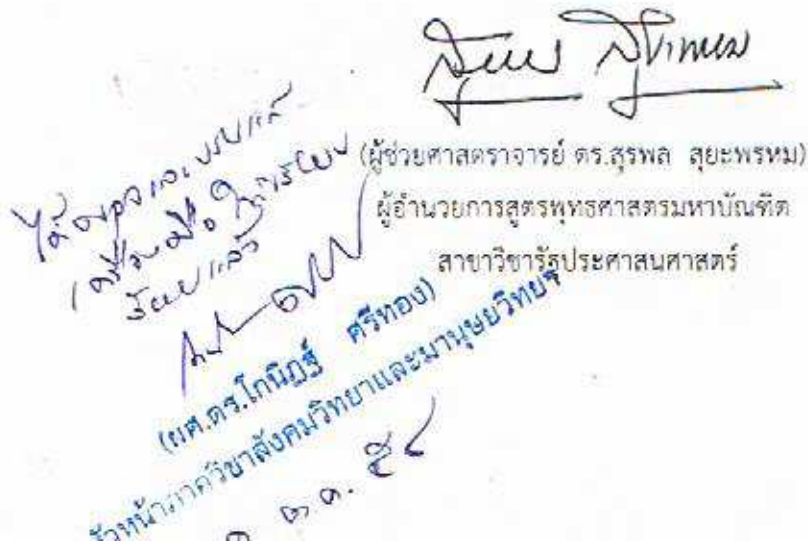 (ผู้ช่วยศาสตราจารย์ ดร.สุรพล สุยะพรหม)
ผู้อำนวยการสูตรพุทธศาสตรมหาบัณฑิต
สาขาวิชารัฐประศาสนศาสตร์
ได้ตรวจและปรับแก้
เครื่องมือ
แล้ว
(ผศ.ดร.โกนิฏฐ์ ศรีทอง)
หัวหน้าภาควิชาสังคมวิทยาและมานุษยวิทยา
ต.ค. ๕๔